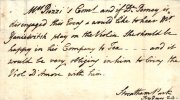 Mr Pozzi's Compts and if Dr Burney is
disengaged this Evey & would like to hear Mr
Janiewitch play on the Violin. She should be
happy in his Company to Tea — and it
would be very obliging in him to bring the
Viol d'Amore with him.